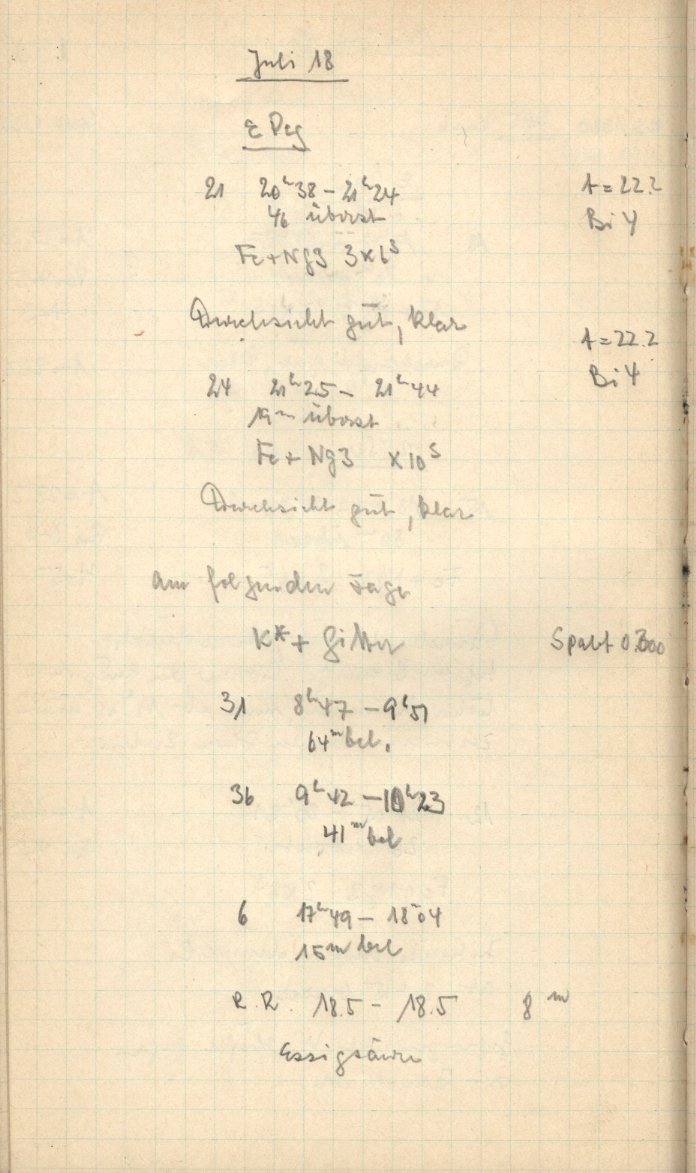 Juli 18
ε Peg
21 20ʰ38 – 21ʰ24 A = 22.2
46 überst Bi 4
Fe + Ng 3 3×6ˢ
Durchsicht gut, klar
A = 22.2
24 21ʰ25 – 21ʰ44 Bi 4
19ᵐ überst
Fe + Ng 3 ×10ˢ
Durchsicht gut, klar
am folgenden Tage
K* + Gitter Spalt 0.300
31 8ʰ47 – 9ʰ51
64ᵐ bel.
36 9ʰ42 – 10ʰ23
41ᵐ bel
6 17ʰ49 – 18ʰ04
15ᵐ bel
R.R. 18.5 – 18.5 8ᵐ
Essigsäure